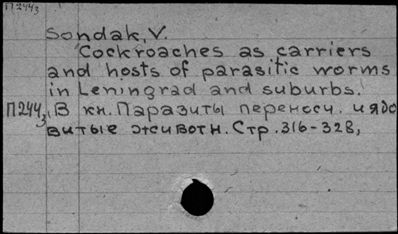 П2443
Sondak, V.
Cockroaches as carriers
and hosts of parasitic worms
in Leningrad and suburbs.
П2443 В кн. Паразиты переносч. и ядо
витые животн. Стр. 316-328,